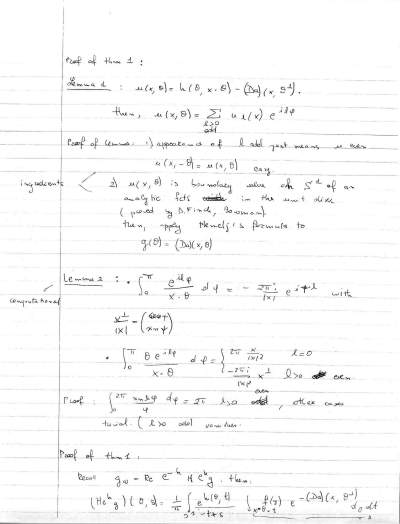 Proof of thm 1 :
Lemma 1 : u(x, θ) = h(θ, x·θ) − (Da)(x, θ^⊥).
then, u(x, θ) = Σ_{l>0 odd} u_l(x) e^{ilφ}
Proof of Lemma: 1) appearance of l odd just means u even
u(x, −θ) = u(x, θ) easy
ingredients
2) u(x, θ) is boundary value on S^1 of an
analytic fcts in the unit disk
(proved by D. Finch, Bowman).
then, apply formula to
g(θ) = (Da)(x, θ)
Lemma 2 : • ∫_0^π e^{ilφ} / x·θ dφ = − 2πi / |x| e^{iψl} with
computational
x^⊥ / |x| = (cos ψ / sin ψ)
• ∫_0^π θ e^{ilφ} / x·θ dφ = { 2π x/|x|² l=0
−2πi / |x|² x^⊥ l>0 even
Proof : ∫_0^{2π} sin lφ / φ dφ = 2π l>0 even, other cases
trivial. ( l>0 odd vanishes.
Proof of thm 1 .
Recall g = Re e^{-h} H e^h g. then.
(He^h g)(θ, s) = 1/π ∫ e^{h(θ,t)} / −t+s ∫_{x·θ=t} f(x) e^{−(Da)(x, θ^⊥)} dx dt